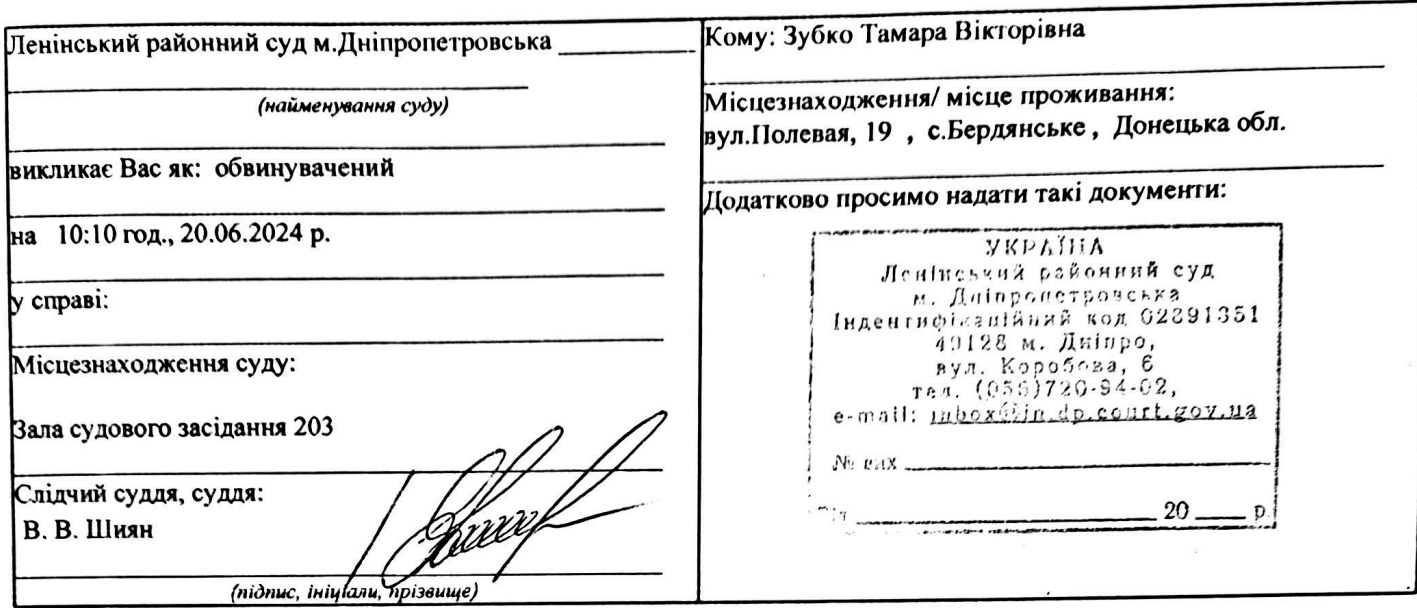 Ленінський районний суд м.Дніпропетровська
(найменування суду)
викликає Вас як: обвинувачений
на 10:10 год., 20.06.2024 р.
у справі:
Місцезнаходження суду:
Зала судового засідання 203
Слідчий суддя, суддя:
В. В. Шиян
(підпис, ініціали, прізвище)
Кому: Зубко Тамара Вікторівна
Місцезнаходження/ місце проживання:
вул.Полевая, 19 , с.Бердянське , Донецька обл.
Додатково просимо надати такі документи:
УКРАЇНА
Ленінський районний суд
м. Дніпропетровська
Індентифікаційний код 02891351
49128 м. Дніпро,
вул. Коробова, 6
тел. (056)720-94-02,
e-mail: inbox@ln.dp.court.gov.ua
№ вих
20 р.